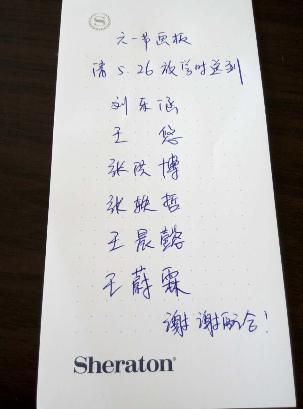 六一节画板
请5.26放学时送到
刘乐涵
王悠
张洪博
张轶哲
王晨懿
王蔚霖
谢谢配合!
Sheraton